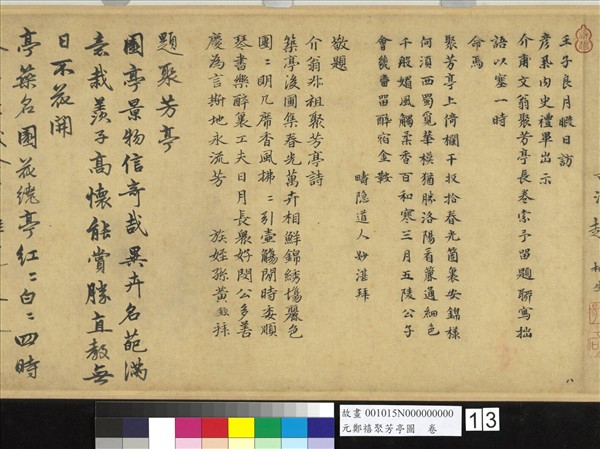 壬子良月暇日訪
彥昇內史禮畢出示
介甫文翁聚芳亭長卷索予留題聊寫拙
語以塞一時
命焉
聚芳亭上倚欄干收拾春光箇裏安錦樣
何須西蜀覓華模猶勝洛陽看簾過細色
千般媚風觸柔香百和寒三月五陵公子
會幾番留醉宿金鞍
晴隐道人妙湛拜
敬題
介翁外祖聚芳亭詩
築亭浚圃集春光萬卉相鮮錦綉塲麗色
團〻明几席香風拂〻引壷觴閒時委順
琴書樂醉裏工夫日月長衆好閔公多善
慶為言斯地永流芳
族姪孫黄 拜
題聚芳亭
園亭景物信奇哉異卉名葩滿
意栽羨子高懷能賞勝直教無
日不花開
亭築名園花繞亭紅〻白〻四時
故畫 001015N000000000
元鄭禧聚芳亭圖 卷
13